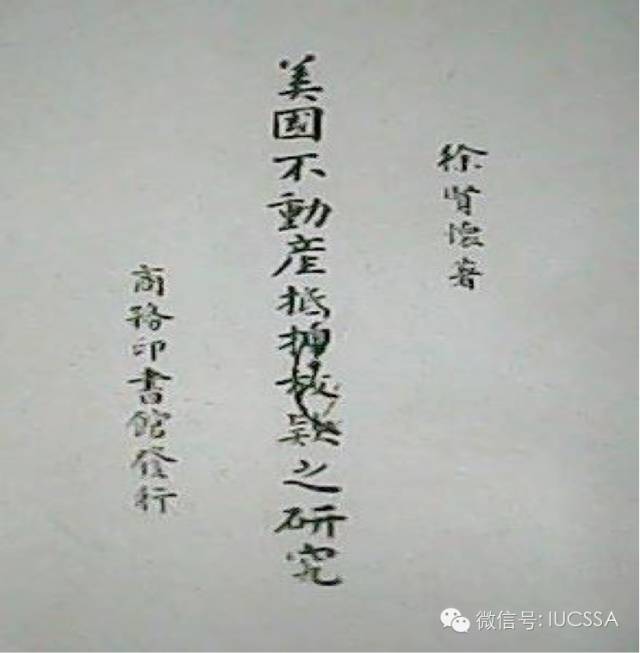 徐賢懷著
美国不動産抵押放款之研究
商務印書館發行
微信号: IUCSSA